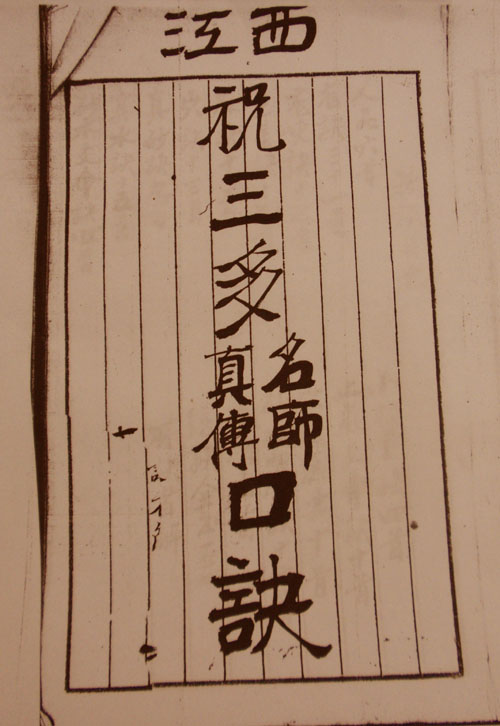 江西
祝三多
名師
真傳
口訣